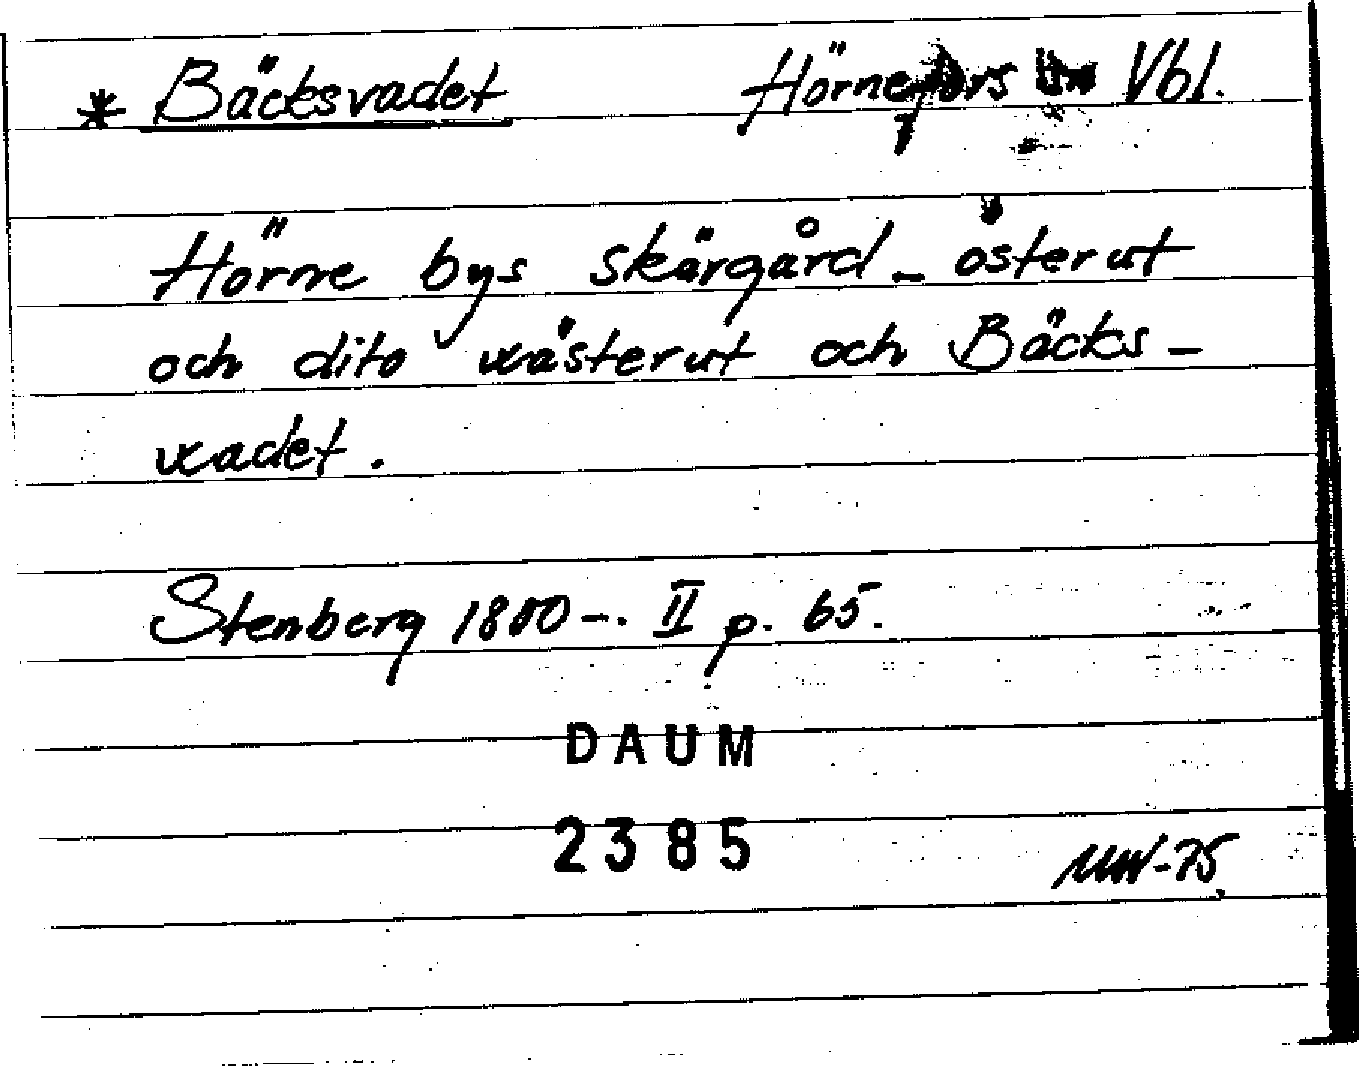 * Bäcksvadet Hörnefors Vbl.
Hörne bys skärgård - österut
och dito wästerut och Bäcks-
wadet.
Stenberg 1800-. II p. 65.
DAUM
2385
MW-75